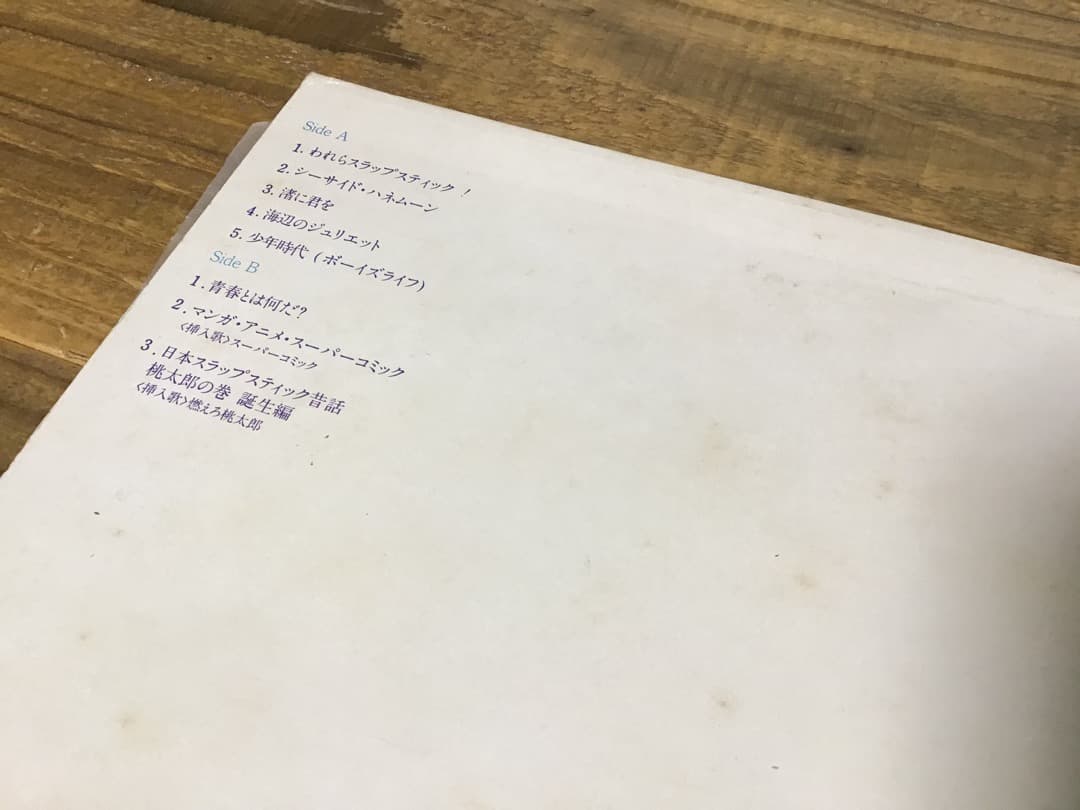 Side A
1. われらスラップスティック！
2. シーサイド・ハネムーン
3. 渚に君を
4. 海辺のジュリエット
5. 少年時代（ボーイズライフ）
Side B
1. 青春とは何だ？
2. マンガ・アニメ・スーパーコミック
〈挿入歌〉スーパーコミック
3. 日本スラップスティック昔話
桃太郎の巻 誕生編
〈挿入歌〉燃えろ桃太郎